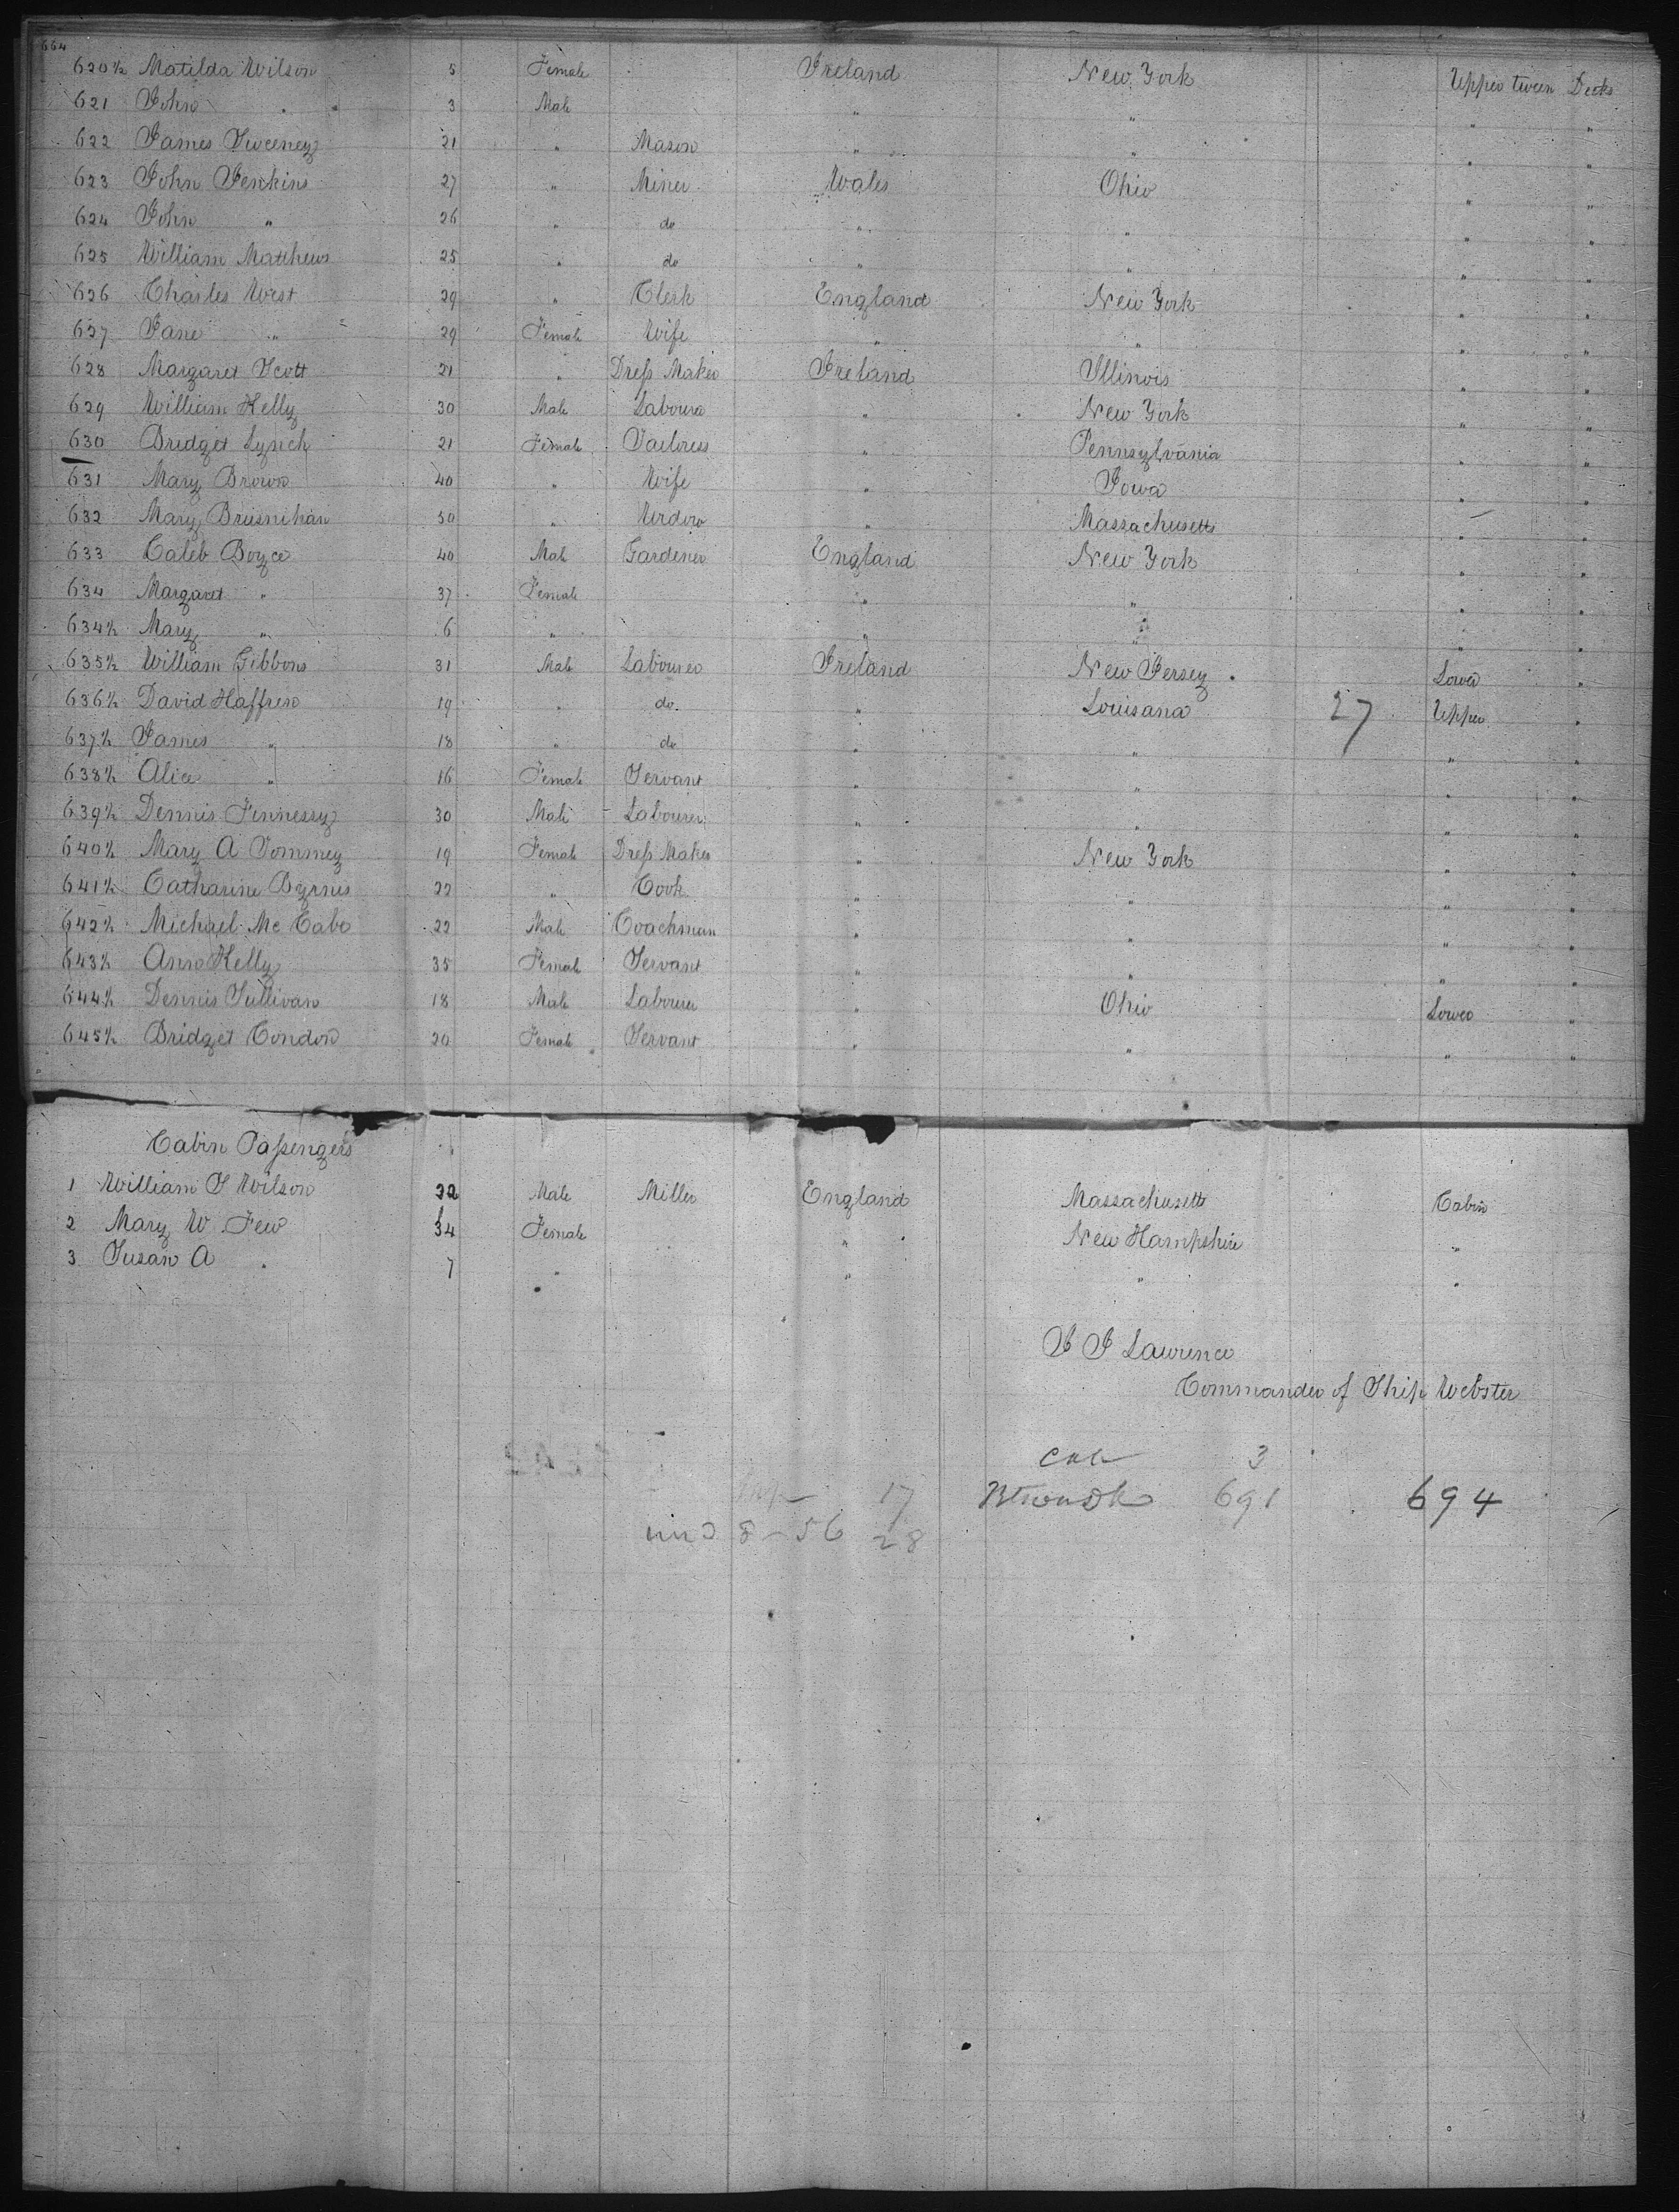 664
620½ Matilda Wilson 5 Female Ireland New York Upper tween Decks
621 John " 3 Male " " " "
622 James Sweeney 21 " Mason " " " "
623 John Jenkins 27 " Miner Wales Ohio " "
624 John " 26 " do " " " "
625 William Matthews 25 " do " " " "
626 Charles West 29 " Clerk England New York " "
627 Jane " 29 Female Wife " " " "
628 Margaret Scott 21 " Dress Maker Ireland Illinois " "
629 William Kelly 30 Male Labourer " New York " "
630 Bridget Lynch 21 Female Tailoress " Pennsylvania " "
631 Mary Brown 40 " Wife " Iowa " "
632 Mary Brusnihan 50 " Widow " Massachusetts " "
633 Caleb Boyce 40 Male Gardener England New York " "
634 Margaret " 37 Female " " " "
634½ Mary " 6 " " " " "
635½ William Gibbons 31 Male Labourer Ireland New Jersey Lower "
636½ David Haffren 19 " do " Louisana 27 Upper "
637½ James " 18 " do " " " "
638½ Alice " 16 Female Servant " " " "
639½ Dennis Finnessy 30 Male Labourer " " " "
640½ Mary A Tommey 19 Female Dress Maker " New York " "
641½ Catharine Byrnes 22 " Cook " " " "
642½ Michael Mc Cabe 22 Male Coachman " " " "
643½ Ann Kelly 35 Female Servant " " "
644½ Dennis Sullivan 18 Male Labourer " Ohio Lower "
645½ Bridget Condon 20 Female Servant " " " "
Cabin Passengers
1 William S Wilson 32 Male Miller England Massachusetts Cabin
2 Mary W Few 34 Female " New Hampshire "
3 Susan A " 7 " " " "
J J Lawrence
Commander of Ship Webster
Cab 3
17 Btwndk 691 694
und 8 - 56 28